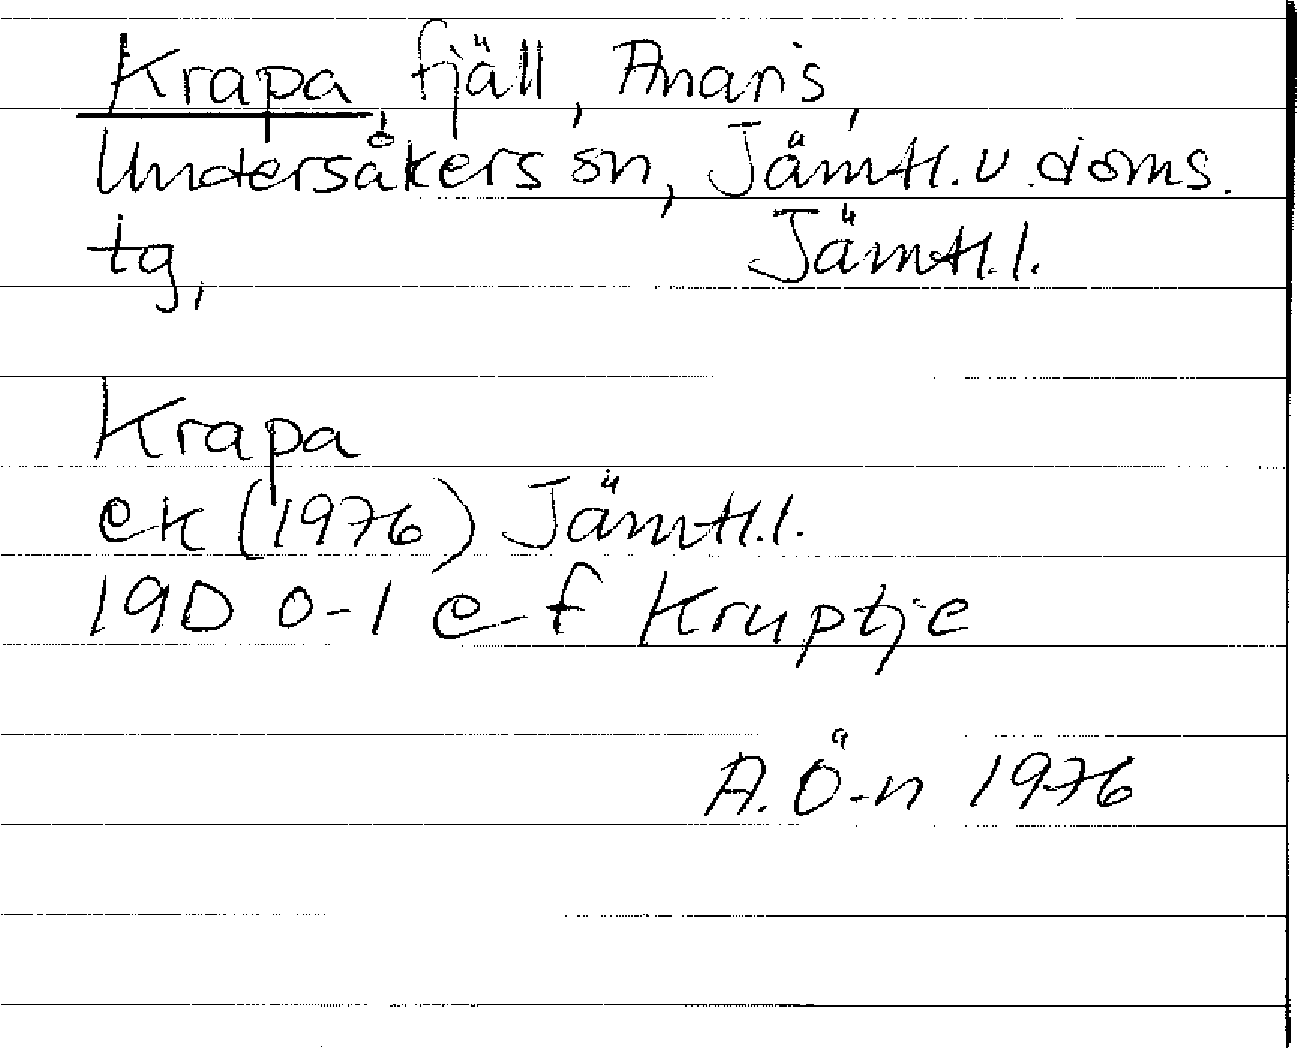 Krapa, fjäll, Anaris,
Undersåkers sn, Jämtl. v. doms.
tg, Jämtl. l.
Krapa
ek (1976) Jämtl. l.
19D 0-1 e f Kruptje
A. Ö-n 1976